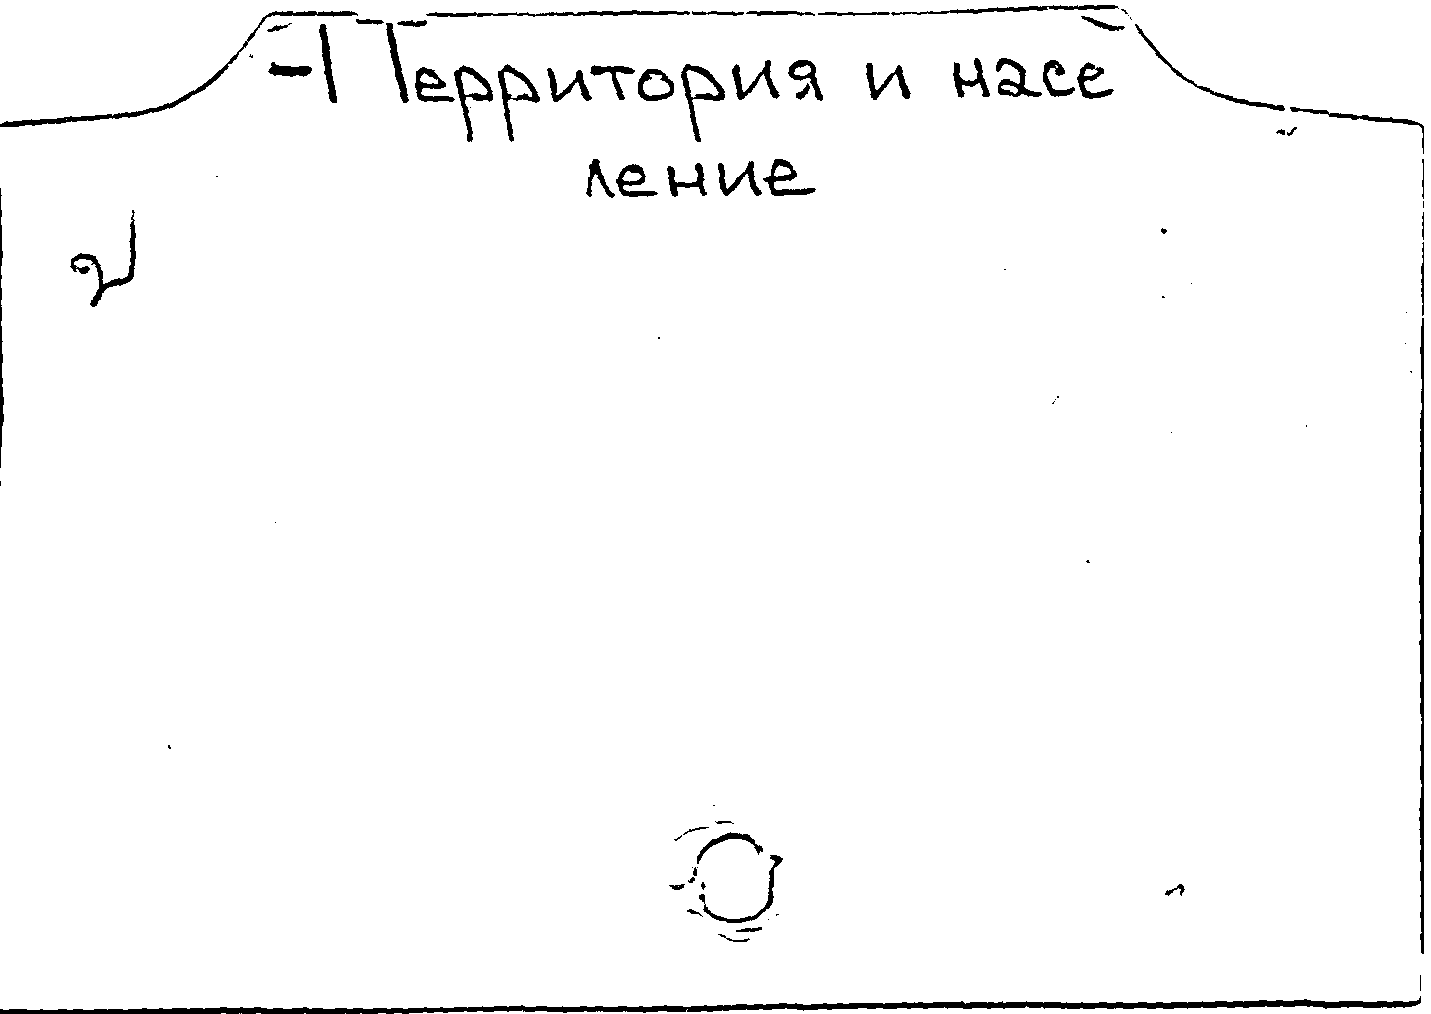 - Территория и насе
ление